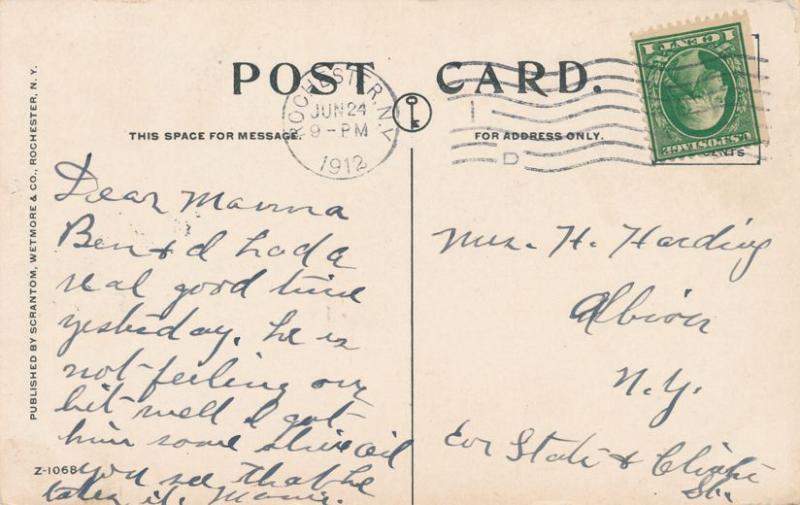 POST CARD.
THIS SPACE FOR MESSAGE.
FOR ADDRESS ONLY.
ROCHESTER, N.Y.
JUN 24
9-PM
1912
1
D
1 CENT 1
U.S. POSTAGE
CENTS
PUBLISHED BY SCRANTOM, WETMORE & CO., ROCHESTER, N. Y.
Z-1068
Dear Mamma
Ben & I had a
real good time
yesterday. he is
not feeling any
bit well I got
him some olive oil
you see that he
takes it. Mamie.
Mrs. H. Harding
Albion
N.Y.
Cor State & Clinton
St.